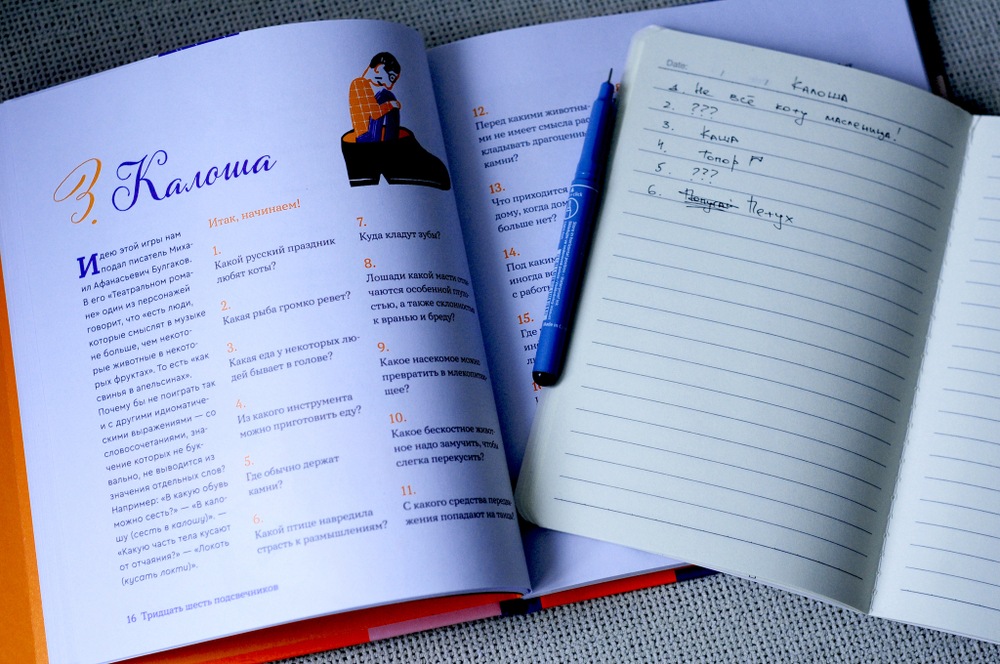 3. Калоша
Идею этой игры нам
подал писатель Миха-
ил Афанасьевич Булгаков.
В его «Театральном рома-
не» один из персонажей
говорит, что «есть люди,
которые смыслят в музыке
не больше, чем некото-
рые животные в некото-
рых фруктах». То есть «как
свинья в апельсинах».
Почему бы не поиграть так
и с другими идиоматиче-
скими выражениями — со
словосочетаниями, зна-
чение которых не бук-
вально, не выводится из
значения отдельных слов?
Например: «В какую обувь
можно сесть?» — «В кало-
шу (сесть в калошу)». —
«Какую часть тела кусают
от отчаяния?» — «Локоть
(кусать локти)».
Итак, начинаем!
1.
Какой русский праздник
любят коты?
2.
Какая рыба громко ревет?
3.
Какая еда у некоторых лю-
дей бывает в голове?
4.
Из какого инструмента
можно приготовить еду?
5.
Где обычно держат
камни?
6.
Какой птице навредила
страсть к размышлениям?
7.
Куда кладут зубы?
8.
Лошади какой масти отли-
чаются особенной глупо-
стью, а также склонностью
к вранью и бреду?
9.
Какое насекомое можно
превратить в млекопитаю-
щее?
10.
Какое бескостное живот-
ное надо замучить, чтобы
слегка перекусить?
11.
С какого средства передви-
жения попадают на танцы?
16 Тридцать шесть подсвечников
12.
Перед какими животны-
ми не имеет смысла рас-
кладывать драгоценные
камни?
13.
Что приходится
дому, когда дом
больше нет?
14.
Под каким
иногда во
с работ
15.
Где
ино
лю
Date: / /
Калоша
1. Не всё коту масленица!
2. ???
3. Каша
4. Топор
5. ???
6. Петух